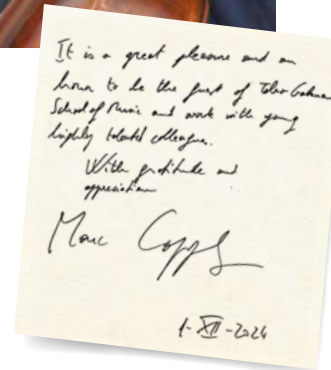 It is a great pleasure and an
honor to be the guest of
School of Music and work with young
highly talented colleagues.
With gratitude and
appreciation
Marc Copp
1-XII-2024